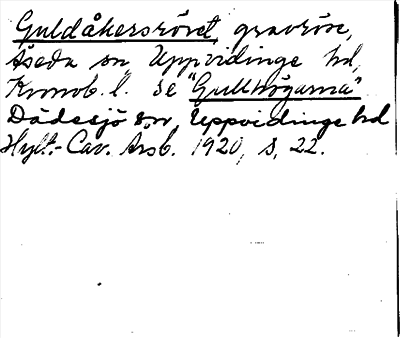 Guldåkersröset, gravröse,
Åseda sn Uppvidinge hd,
Kronob. l. se "Gullhögarna"
Dädesjö sn, Uppvidinge hd
Hylt.-Cav. Årsb. 1920, s. 22.